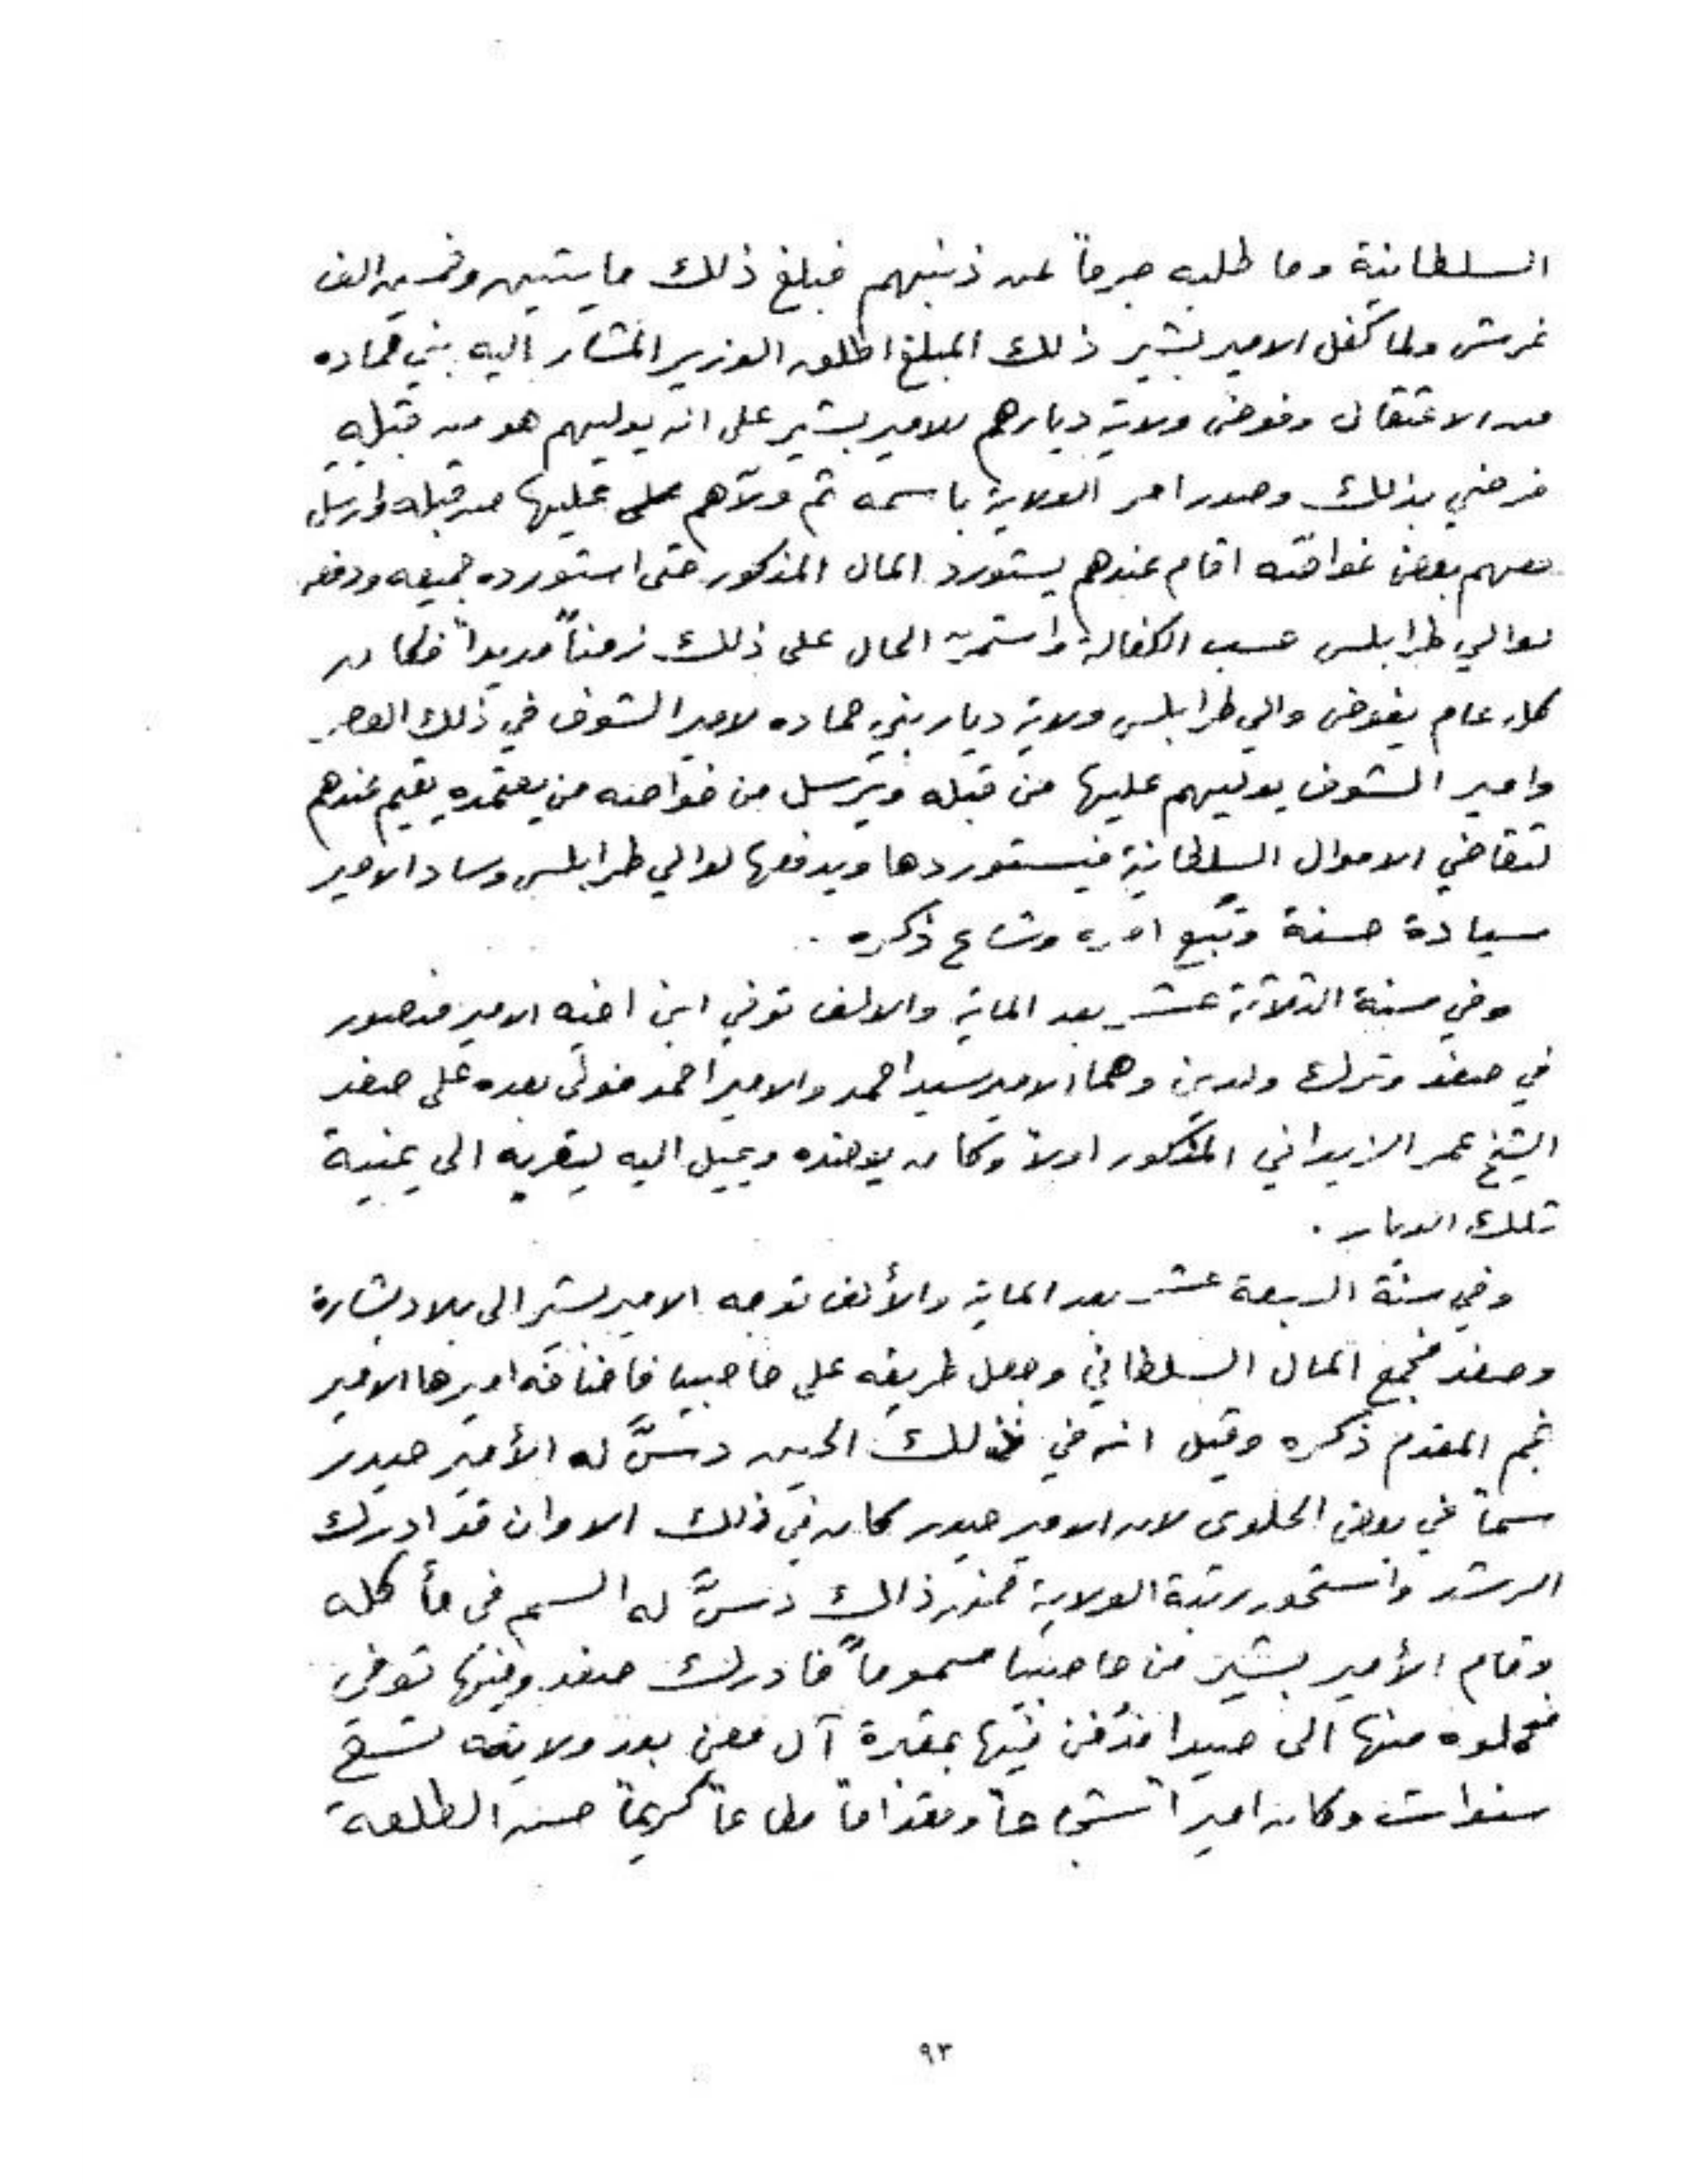 السلطانية وما طلبه جرماً عن ذنبهم فبلغ ذلك مايتين وخمسين الف
غرش ولما كفل الامير بشير ذلك المبلغ اطلق الوزير المشار اليه بني حماده
من الاعتقال وفوض ولاية ديارهم للامير بشير على ان يوليهم هو من قبله
فرضي بذلك وصدر امر الولاية باسمه ثم ولّاهم على عليها من قبله وارسل
معهم بعض خواصّه اقام عندهم يستورد المال المذكور حتى استورده جميعه ودفعه
لوالي طرابلس حسب الكفالة واستمرّ الحال على ذلك زمناً مديداً فكان
كل عام يفوض والي طرابلس ولاية ديار بني حماده لامير الشوف في ذلك العصر
وامير الشوف يوليهم عليها من قبله ويرسل من خواصه من يعتمده يقيم عندهم
لتقاضي الاموال السلطانية فيستوردها ويدفعها لوالي طرابلس وساد الامير
سيادة حسنة وتبع امره وشاع ذكره .
وفي سنة الثلاثة عشر بعد الماية والالف توفي ابن اخيه الامير منصور
في صفد وترك ولدين وهما الامير سيد احمد والامير احمد فولى بعده على صفد
الشيخ عمر الزيداني المذكور اولاً وكان يعضده ويميل اليه ليقربه الى يمنية
تلك الديار .
وفي سنة السبعة عشر بعد الماية والألف توجه الامير بشير الى بلاد بشارة
وصفد فجمع المال السلطاني وجعل طريقه على حاصبيا فاضافه اميرها الامير
نجم المقدم ذكره وقيل انه في ذلك الحين دسَّ له الأمير حيدر
سماً في بعض الحلوى لان الامير حيدر كان في ذلك الاوان قد ادرك
الرشد واستحق رتبة الولاية فمن ذالك دسَّ له السم في مأكله
وقام الأمير بشير من حاصبيا مسموماً فادرك صفد وفيها توفى
فحملوه منها الى صيدا فدُفن فيها بمقبرة آل معن بعد ولايته تسع
سنوات وكان اميراً شجاعاً ومقداماً مطاعاً كريماً حسن الطلعة
٩٣